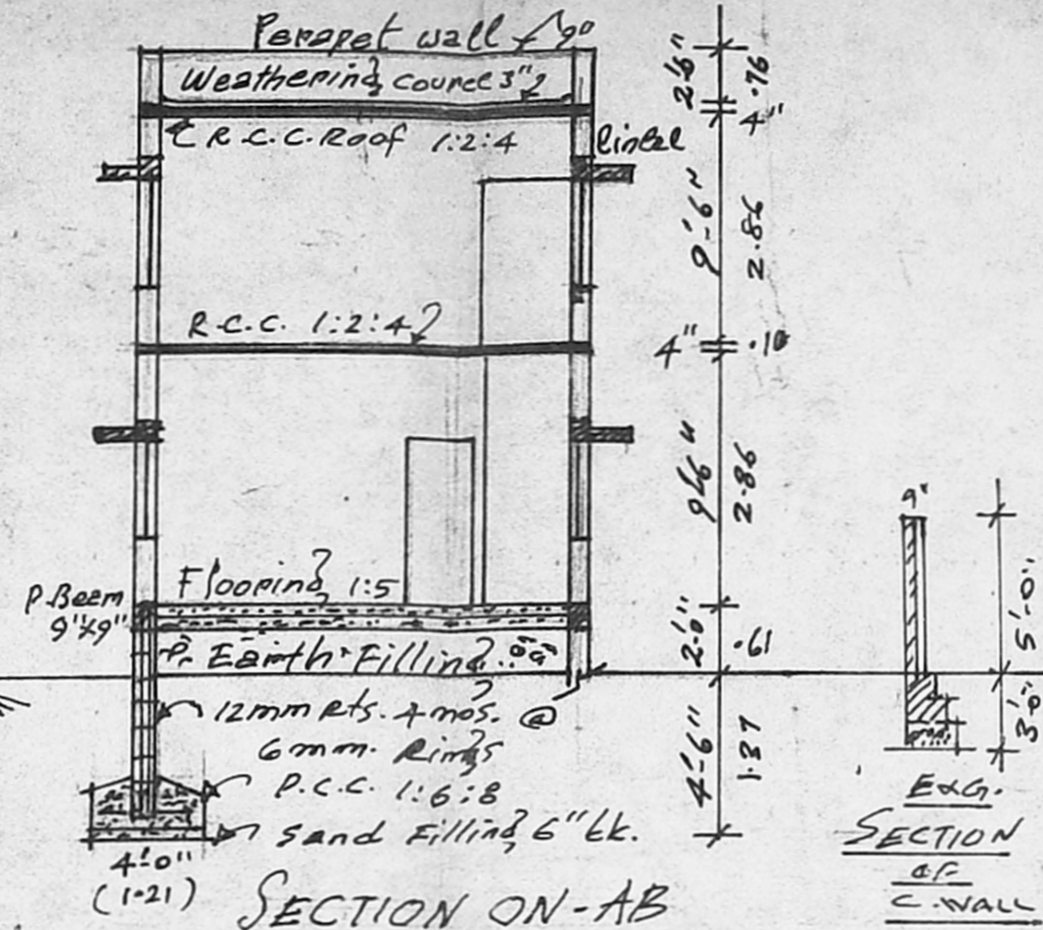 Perapet wall 9"
Weathering cource 3"
R.C.C. Roof 1:2:4
lintel
R.C.C. 1:2:4
Flooring 1:5
P. Beem
9"x9"
Earth Filling
12mm Rts. 4 nos. @
6mm. Rings
P.C.C. 1:6:8
Sand Filling 6" tk.
4'-0"
(1.21)
SECTION ON-AB
2'6" .76
4"
9'-6" 2.86
4" .10
9'-6" 2.86
2'-0" .61
4'-6" 1.37
9"
5'-0"
3'-0"
EXG.
SECTION
OF
C. WALL